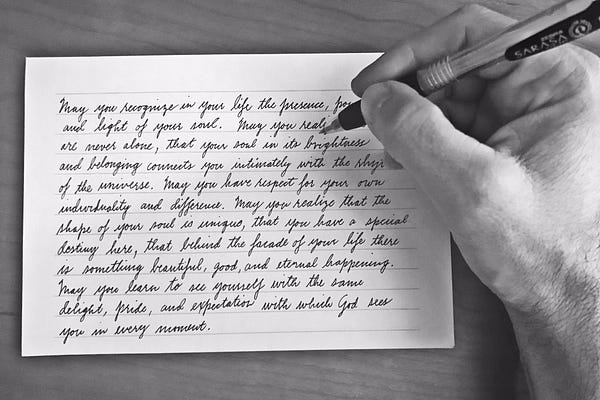 May you recognize in your life the presence,
and light of your soul. May you
are never alone, that your soul in its brightness
and belonging connects you intimately with the
of the universe. May you have respect for your own
individuality and difference. May you realize that the
shape of your soul is unique, that you have a special
destiny here, that behind the facade of your life there
is something beautiful, good, and eternal happening.
May you learn to see yourself with the same
delight, pride, and expectation with which God sees
you in every moment.
SARASA